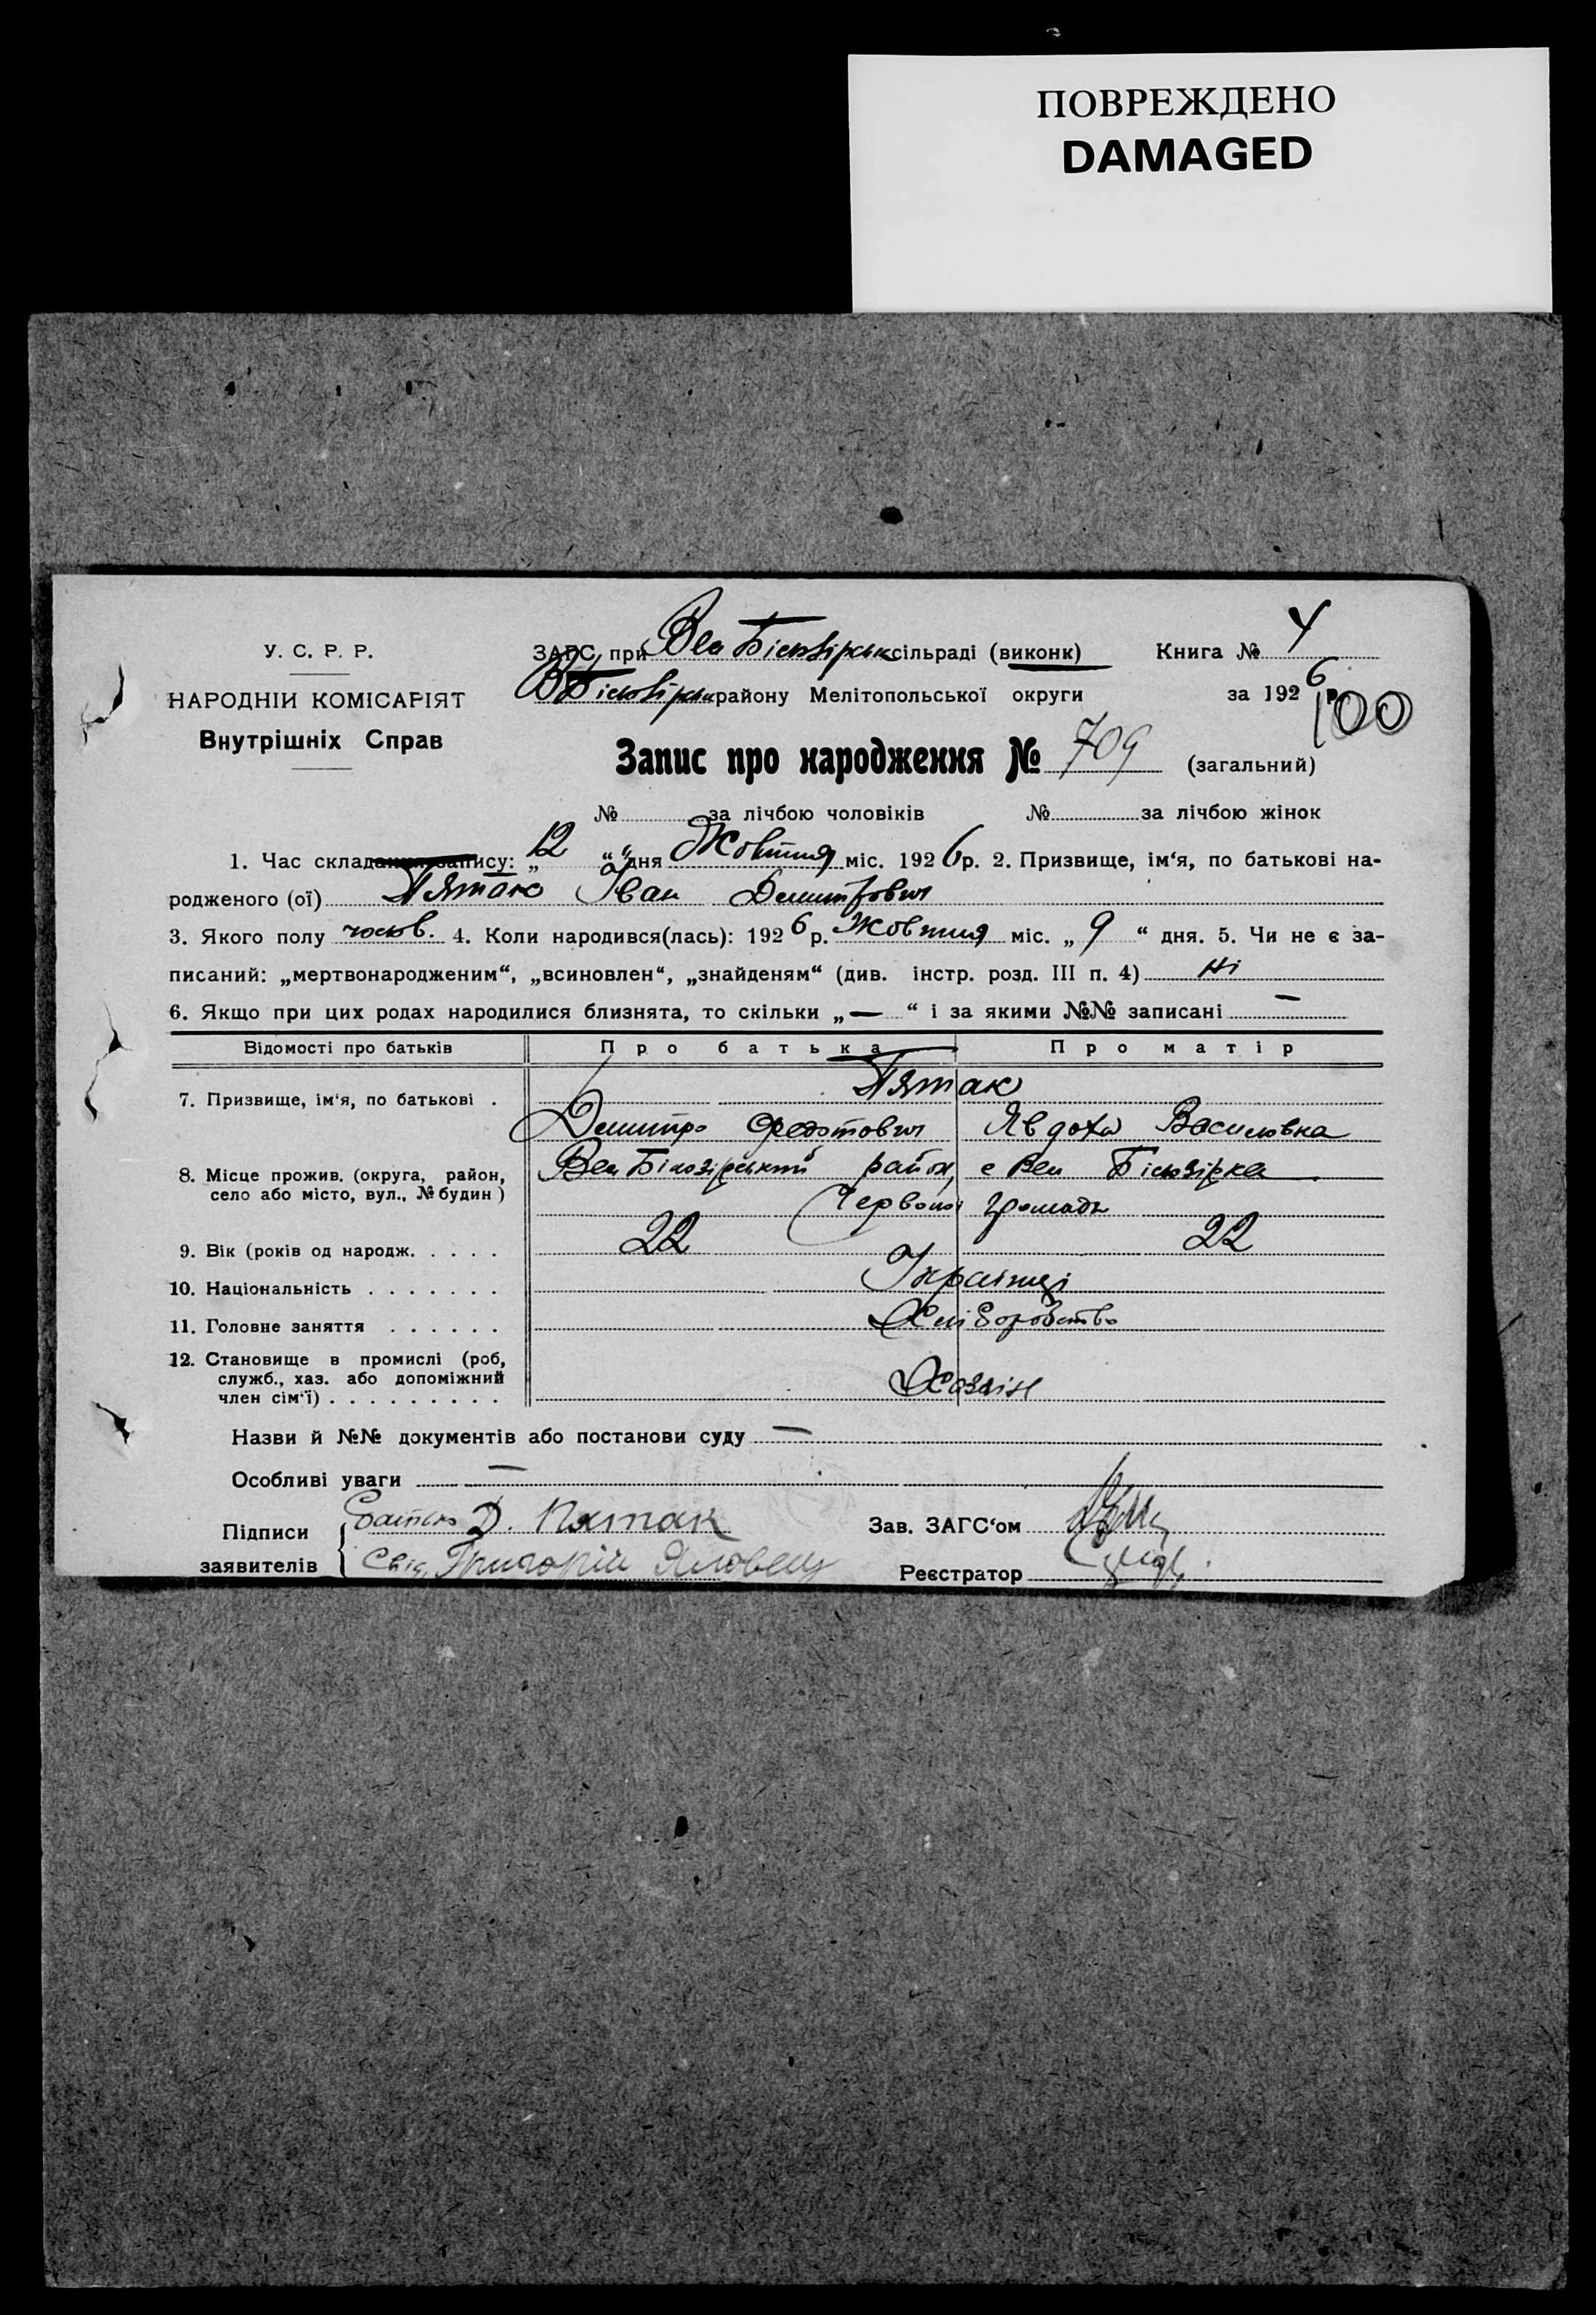 ПОВРЕЖДЕНО
DAMAGED
У. С. Р. Р.
НАРОДНІЙ КОМІСАРІЯТ
Внутрішніх Справ
ЗАГС при Вел Білозірськ сільраді (виконк) Книга № 4
В Білозірськ району Мелітопольської округи за 1926 р.
100
Запис про народження № 709 (загальний)
№ за лічбою чоловіків № за лічбою жінок
1. Час складання запису: „12“ дня Жовтня міс. 1926 р. 2. Призвище, ім'я, по батькові на-
родженого (ої) Пятак Іван Демитрович
3. Якого полу чолов. 4. Коли народився(лась): 1926 р. Жовтня міс. „9“ дня. 5. Чи не є за-
писаний: „мертвонародженим“, „всиновлен“, „знайденям“ (див. інстр. розд. III п. 4) Ні
6. Якщо при цих родах народилися близнята, то скільки „—“ і за якими №№ записані —
Відомості про батьків Про батька Про матір
7. Призвище, ім'я, по батькові . Пятак
Демитро Федотович Явдоха Василовка
8. Місце прожив. (округа, район, село або місто, вул., № будин) Вел Білозірський район, с Вел Білозірка
Червоної громади
9. Вік (років од народж. . . . . 22 22
10. Національність . . . . . . . Українці
11. Головне заняття . . . . . . Хліборобство
12. Становище в промислі (роб, служб., хаз. або допоміжний член сім'ї) . . . . . . . . . Хазяїн
Назви й №№ документів або постанови суду —
Особливі уваги —
Підписи заявителів { Батько Д. Пятак
Свід. Григорій Яловец
Зав. ЗАГС'ом
Реєстратор